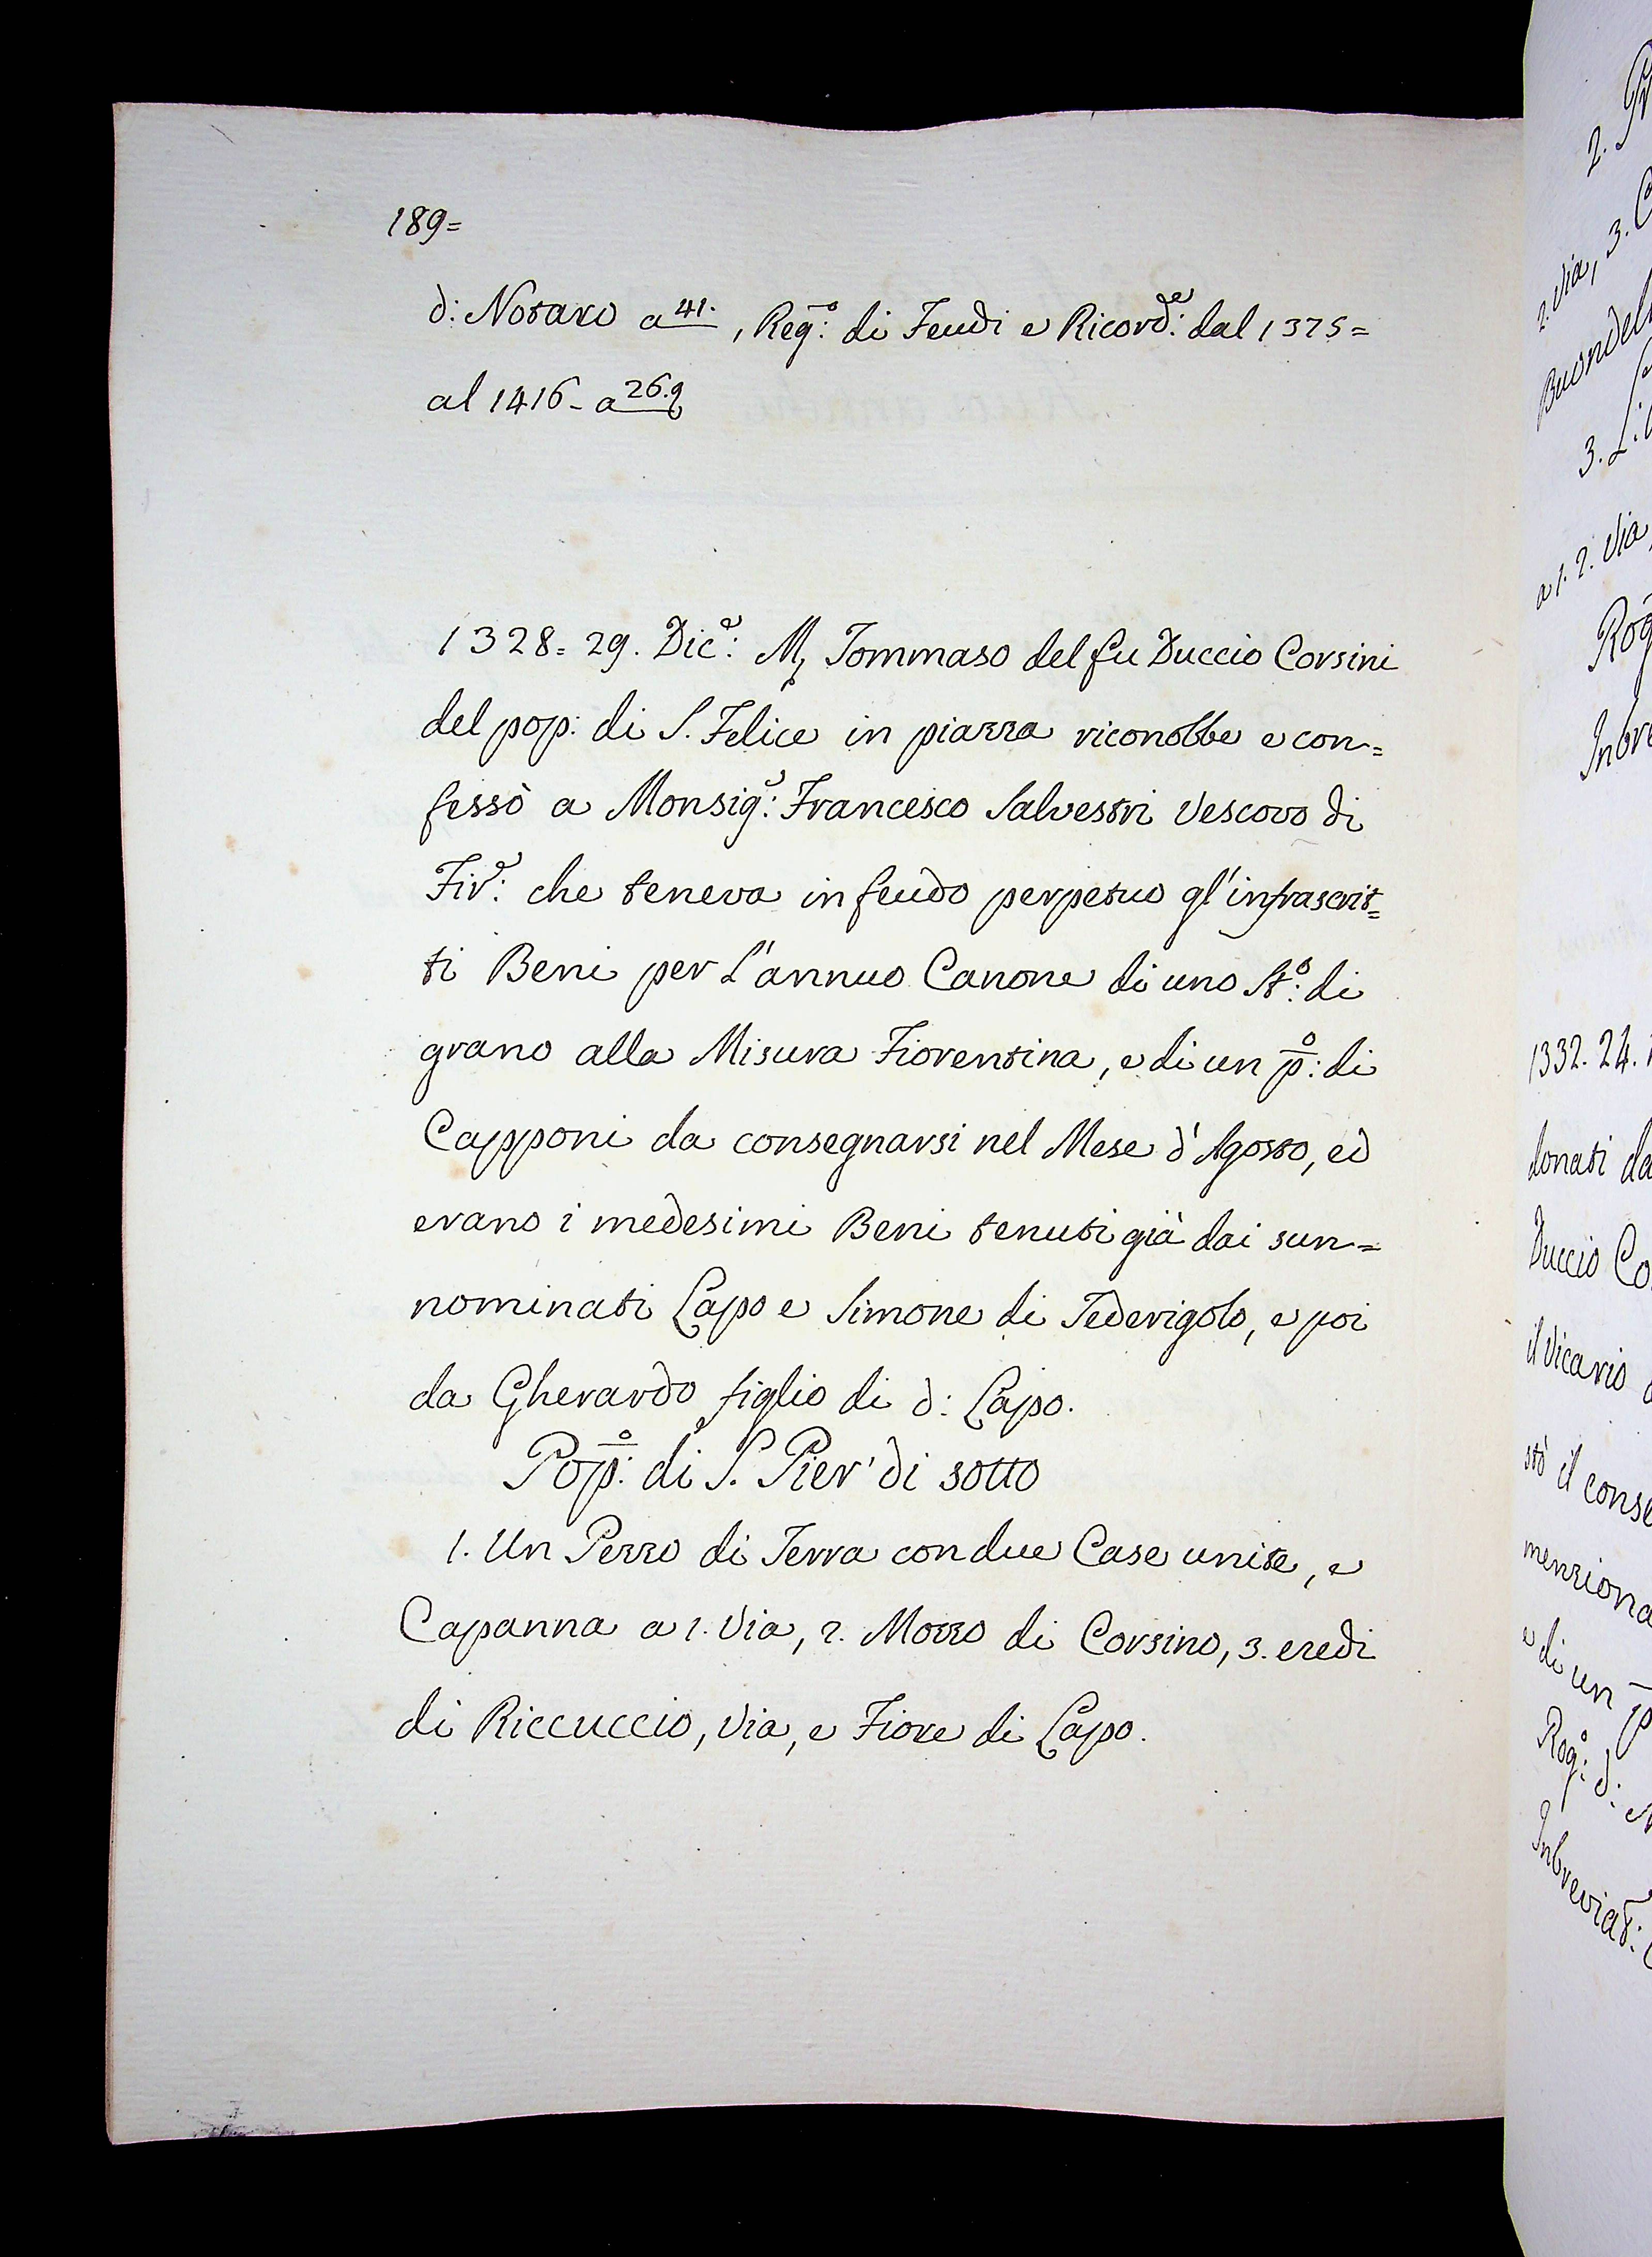 189=
d: Notaro a 41. , Reg:º di Feudi e Ricord:e dal 1375=
al 1416- a 26.9
1328= 29. Dic:e M. Tommaso del fu Duccio Corsini
del pop: di S. Felice in piazza riconobbe e con=
fessò a Monsig:e Francesco Salvestri Vescovo di
Fir:e che teneva in feudo perpetuo gl'infrascrit=
ti Beni per l'annuo Canone di uno St:º di
grano alla Misura Fiorentina, e di un p:º di
Capponi da consegnarsi nel Mese d'Agosto, ed
erano i medesimi Beni tenuti già dai sun=
nominati Lapo e Simone di Federigolo, e poi
da Gherardo figlio di d: Lapo.
Pop:º di S. Pier' di sotto
1. Un Pezzo di Terra con due Case unite, e
Capanna a 1. Via, 2. Mozzo di Corsino, 3. eredi
di Riccuccio, Via, e Fiore di Lapo.
2.
2. Via, 3.
Buondel
3.
a 1. 2. Via
Rog
Inbre
1332. 24.
donati da
Duccio Co
il Vicario
stò il conse
menziona
e di un p
Rog:º d:
Inbreviat: